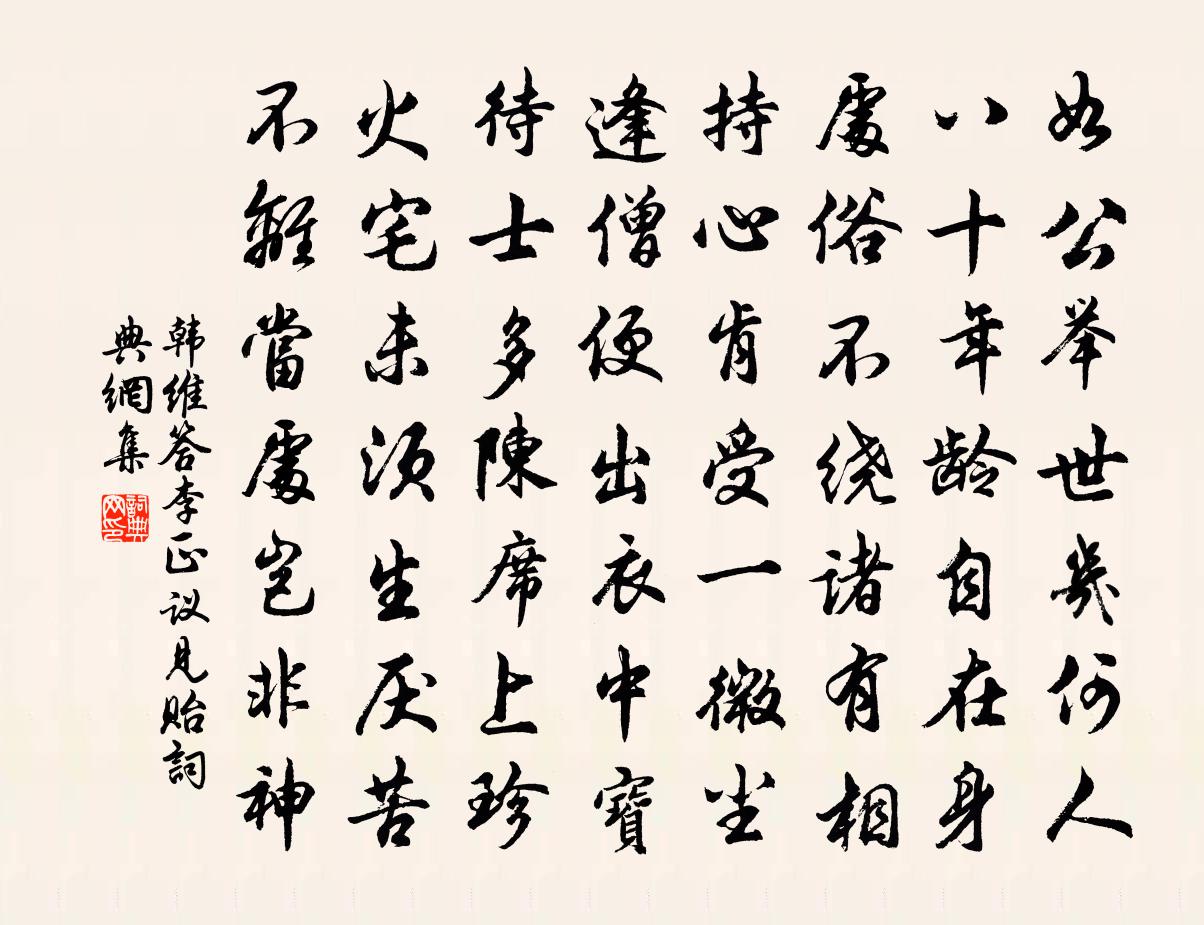 如公举世幾何人
八十年龄自在身
處俗不绕诸有相
持心肯受一微尘
逢僧便出衣中寶
待士多陳席上珍
火宅未须生厌苦
不離當處岂非神
韩维答李正议见贻詞
典網集
詞典网印